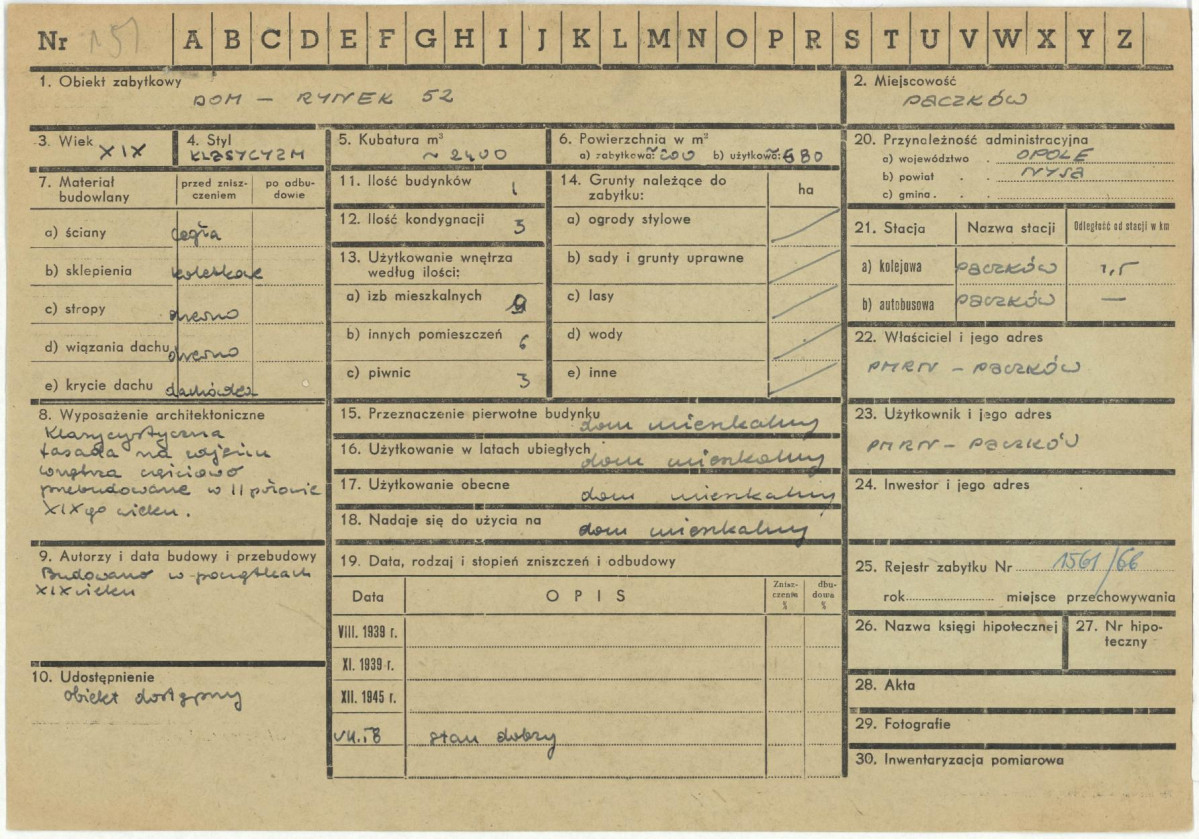 Nr 151 A B C D E F G H I J K L M N O P R S T U V W X Y Z
1. Obiekt zabytkowy
DOM – RYNEK 52
2. Miejscowość
PACZKÓW
3. Wiek
XIX
4. Styl
KLASYCYZM
5. Kubatura m³
~ 2400
6. Powierzchnia w m²
a) zabytkowa: ~200 b) użytkowa: ~680
7. Materiał budowlany
przed zniszczeniem
po odbudowie
a) ściany cegła
b) sklepienia kolebkowe
c) stropy drewno
d) wiązania dachu drewno
e) krycie dachu dachówka
8. Wyposażenie architektoniczne
Klasycystyczna
fasada
wnętrza częściowo
przebudowane w II połowie
XIXgo wieku.
9. Autorzy i data budowy i przebudowy
Budowano w początkach
XIX wieku
10. Udostępnienie
obiekt dostępny
11. Ilość budynków 1
12. Ilość kondygnacji 3
13. Użytkowanie wnętrza
według ilości:
a) izb mieszkalnych 9
b) innych pomieszczeń 6
c) piwnic 3
14. Grunty należące do
zabytku:
ha
a) ogrody stylowe
b) sady i grunty uprawne
c) lasy
d) wody
e) inne
15. Przeznaczenie pierwotne budynku
dom mieszkalny
16. Użytkowanie w latach ubiegłych dom mieszkalny
17. Użytkowanie obecne dom mieszkalny
18. Nadaje się do użycia na dom mieszkalny
19. Data, rodzaj i stopień zniszczeń i odbudowy
Data OPIS Zniszczenia % dbudowa %
VIII. 1939 r.
XI. 1939 r.
XII. 1945 r.
VII.58 stan dobry
20. Przynależność administracyjna
a) województwo . OPOLE
b) powiat . . NYSA
c) gmina . . .
21. Stacja Nazwa stacji Odległość od stacji w km
a) kolejowa PACZKÓW 1,5
b) autobusowa PACZKÓW —
22. Właściciel i jego adres
PMRN – PACZKÓW
23. Użytkownik i jego adres
PMRN – PACZKÓW
24. Inwestor i jego adres
25. Rejestr zabytku Nr 1561/66
rok miejsce przechowywania
26. Nazwa księgi hipotecznej
27. Nr hipoteczny
28. Akta
29. Fotografie
30. Inwentaryzacja pomiarowa